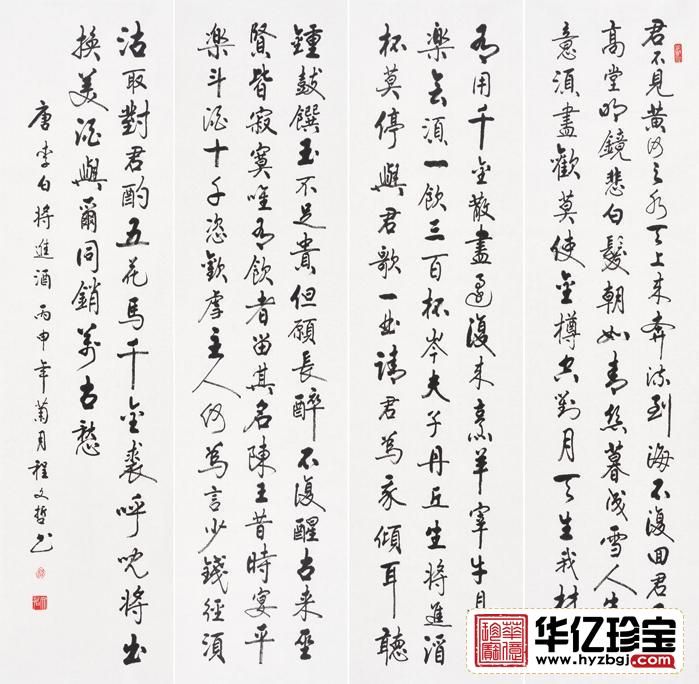 君不見黃河之水天上來奔流到海不復回君
高堂明鏡悲白髮朝如青絲暮成雪人生
意須盡歡莫使金樽空對月天生我材
有用千金散盡還復來烹羊宰牛且
樂會須一飲三百杯岑夫子丹丘生將進酒
杯莫停與君歌一曲請君為我傾耳聽
鍾鼓饌玉不足貴但願長醉不復醒古來聖
賢皆寂寞唯有飲者留其名陳王昔時宴平
樂斗酒十千恣歡虐主人何為言少錢徑須
沽取對君酌五花馬千金裘呼兒將出
換美酒與爾同銷萬古愁
唐李白將進酒 丙申年菊月程文哲書
华亿珍宝
www.hyzbgj.com